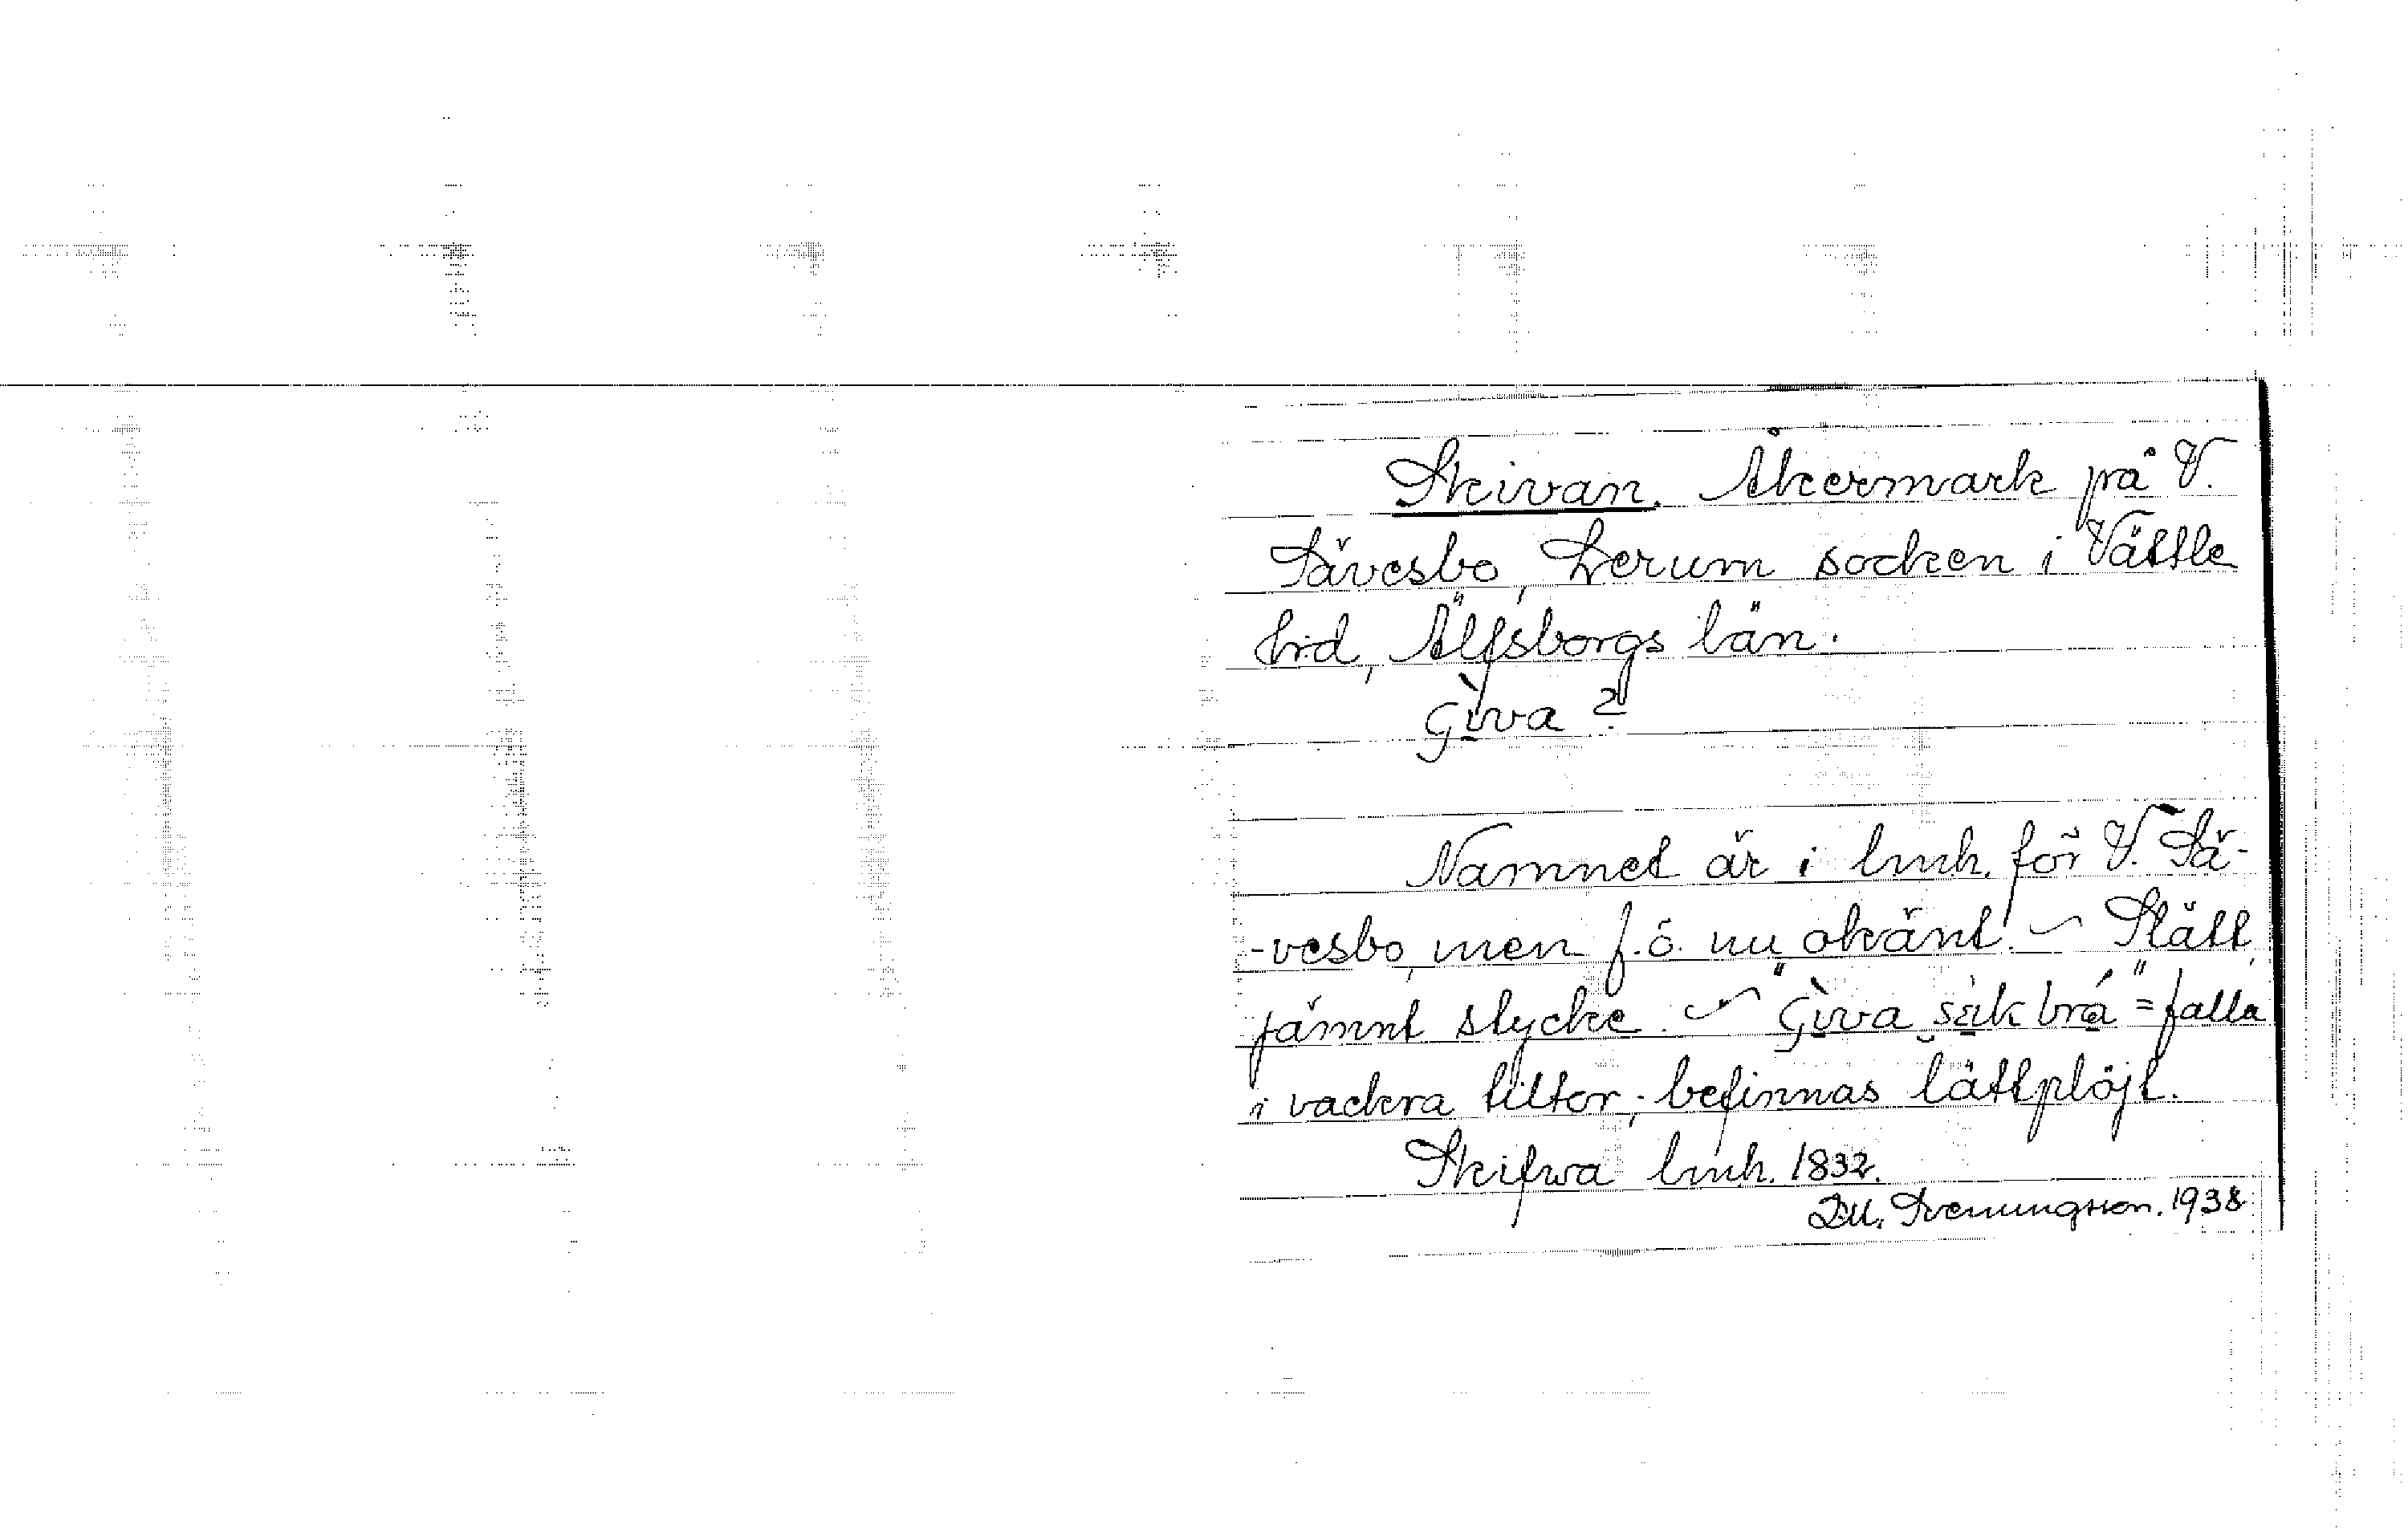 Skivan. Åkermark på V.
Sävesbo, Lerum socken i Vättle
hrd, Älfsborgs län.
Gìva ?
Namnet är i lmh. för V. Sä-
-vesbo, men f.ö. nu okänt. ~ Slätt,
jämnt stycke. ~ "Gìva säk brá" = falla
i vackra tiltor; befinnas lättplöjt.
Skifwa lmh. 1832.
Svenungsson. 1938